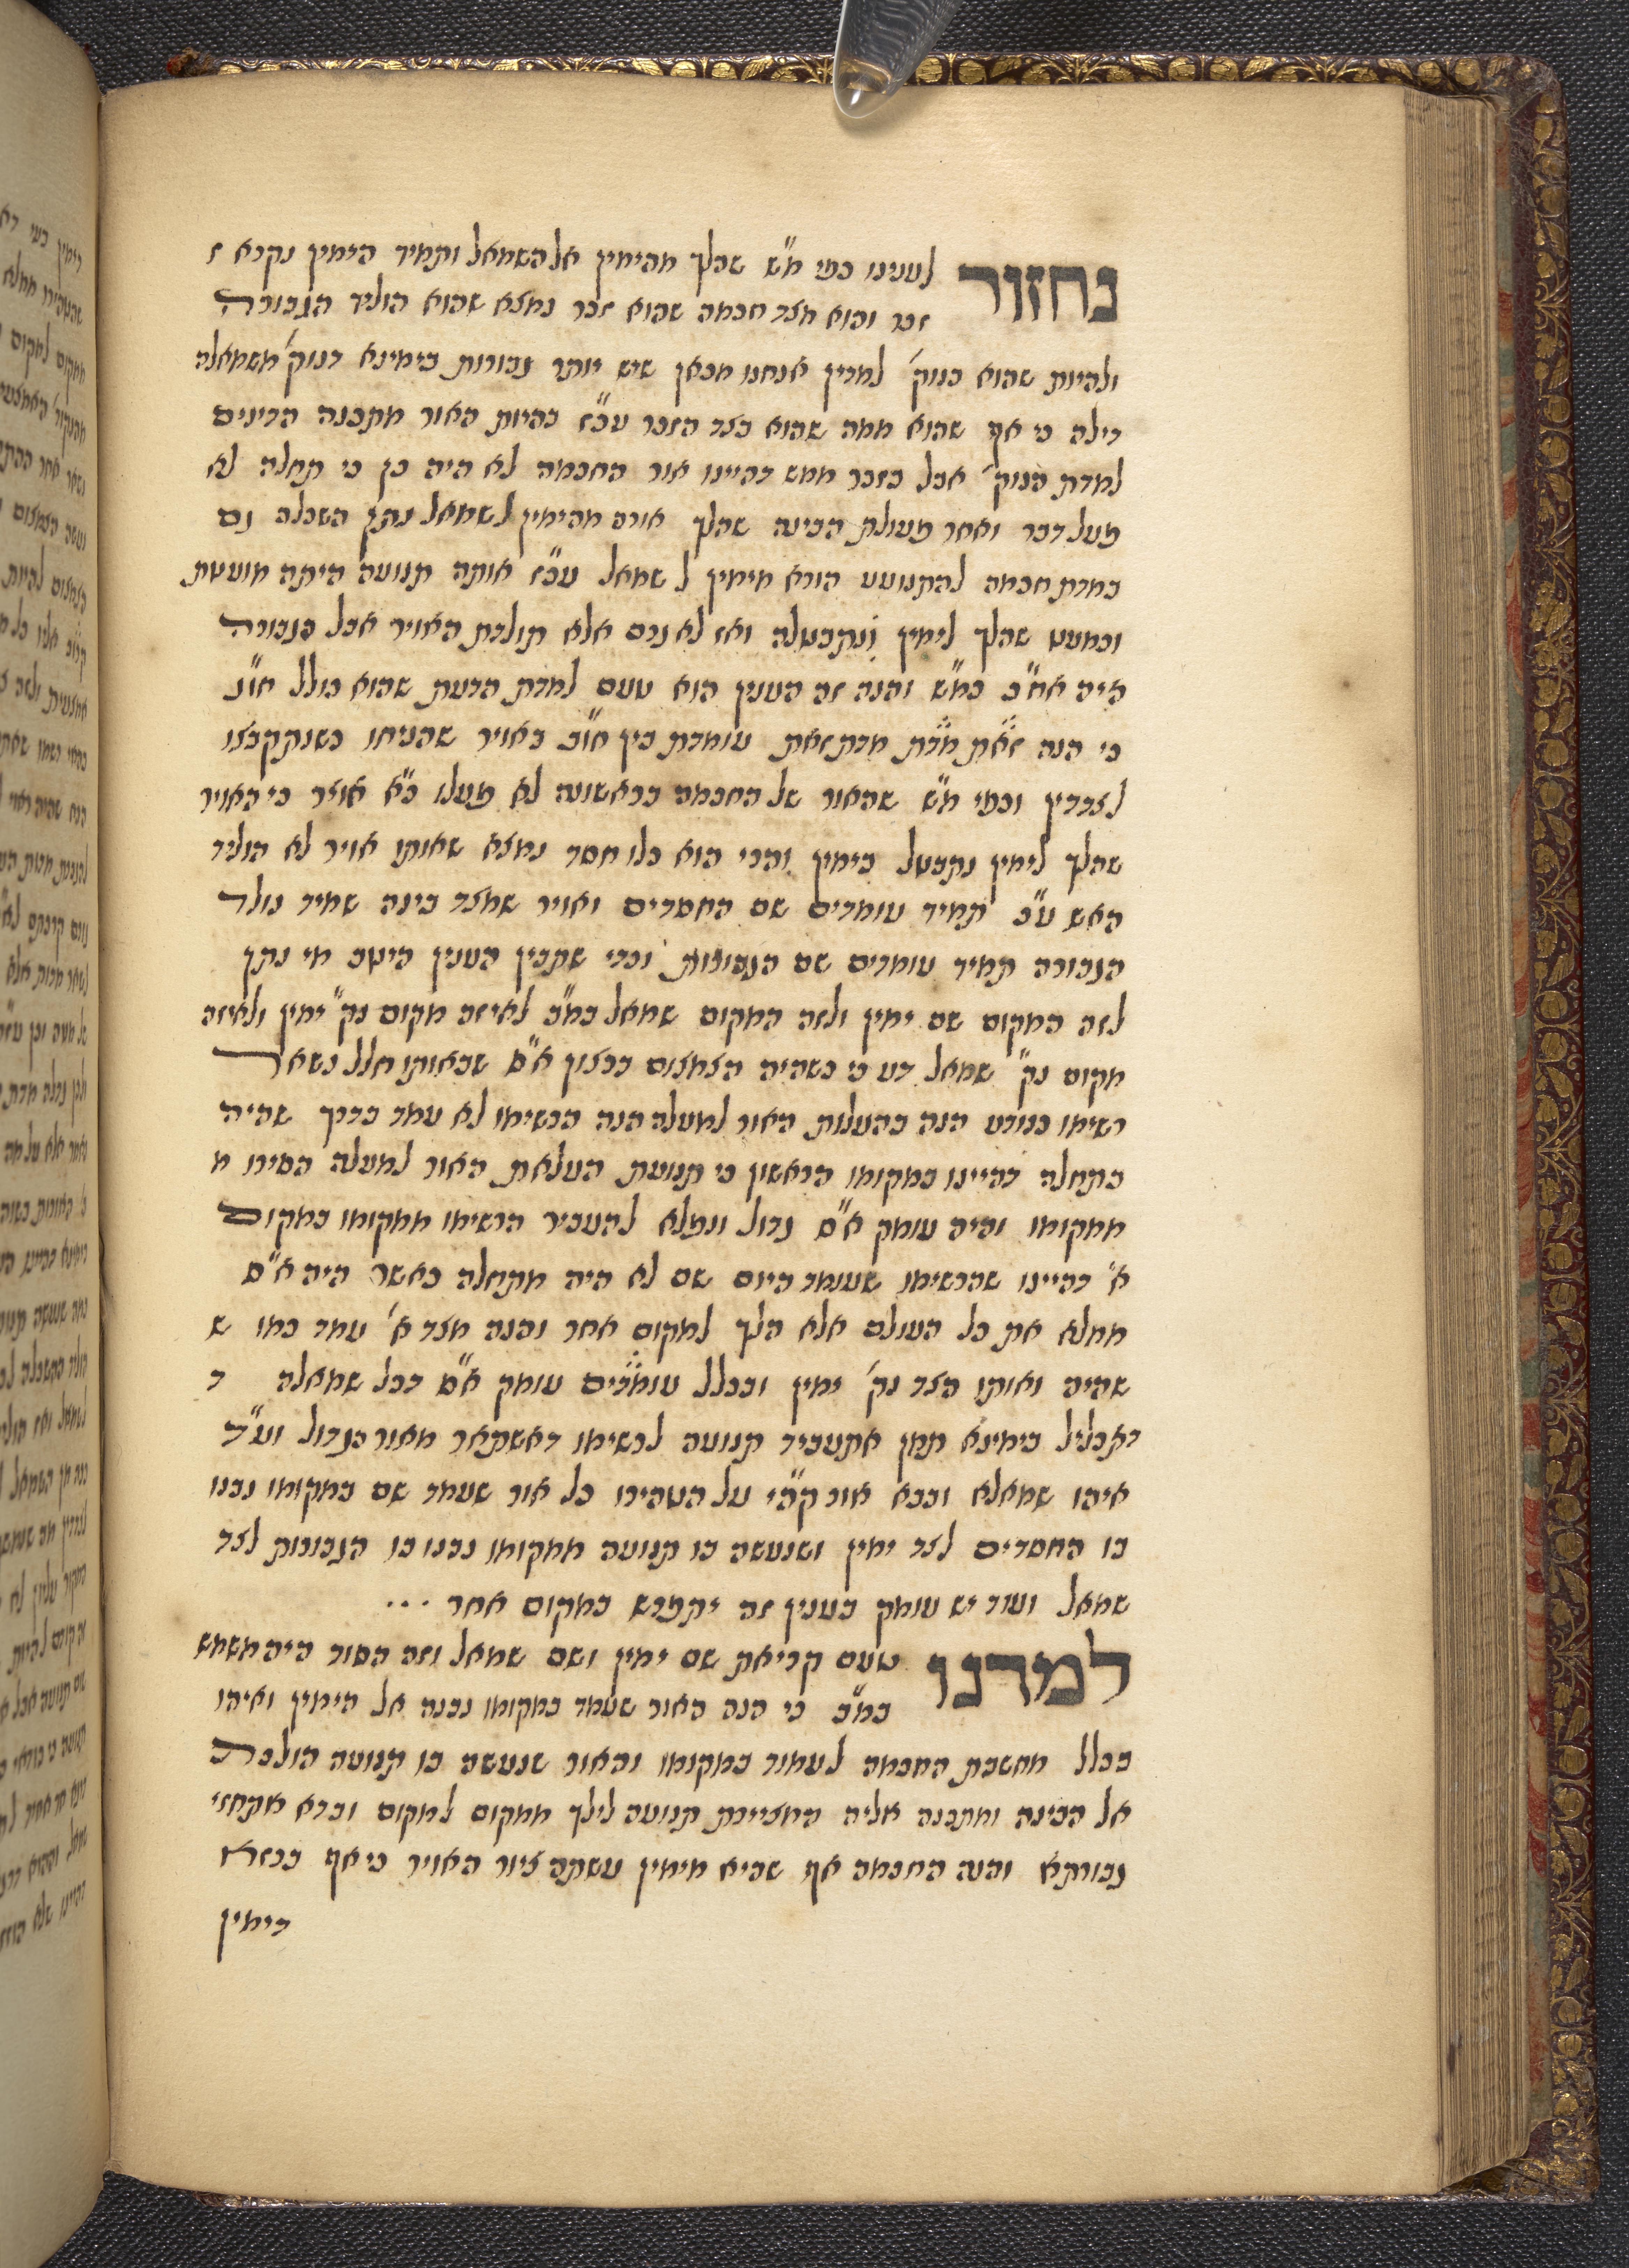 נחזור לענינו כפי מ"ש שהלך מהימין אל השמאל ותמיד הימין נקרא ז
זכר והוא מצד חכמה שהוא זכר נמצא שהוא הוליד הגבורה
ולהיות שהוא בנוק' למדין אנחנו מכאן שיש יותר גבורות בימינא דנוק' משמאלה
דילה כי אף שהוא ממה שהוא בצד הזכר עכ"ז בהיות האור מתכנה הדינים
למדת הנוק' אבל בזכר ממש דהיינו אור החכמה לא היה כן כי תחלה לא
פעל דבר ואחר פעולת הבינה שהלך אורה מהימין לשמאל נתן השכלה גם
במדת חכמה להתנועע הורא מימין לשמאל עכ"ז אותה תנועה היתה מועטת
וכמעט שהלך לימין ונתבטלה ואז לא גרם אלא תולדת האויר אבל הגבורה
היה אח"כ כמ"ש והנה זה הענין הוא טעם למדת הדעת שהוא כולל חו"ג
כי הנה זאת מדת מדת זאת עומדת בין חו"ב באויר שהניחו כשנתקבצו
לצדדין וכפי מ"ש שהאור של החכמה בראשונה לא פעלו כ"א אויר כי האויר
שהלך לימין נתבטל בימין והרי הוא כלו חסד נמצא שאותו אויר לא הוליד
האש ע"כ תמיד עומדים שם החסדים ואויר שמצד בינה שמיד נולד
הגבורה תמיד עומדים שם הגבורות וכדי שתבין הענין היטב מי נתן
לזה המקום שם ימין ולזה המקום שמאל כמ"כ לאיזה מקום נק' ימין ולאיזה
מקום נק' שמאל דע כי כשהיה הצמצום ברצון א"ס שבאותו חלל נשאר
רשימו כנודע הנה בהעלות האור למעלה הנה הרשימו לא עמד כדרך שהיה
בתחלה דהיינו במקומו הראשון כי תנועת העלאת האור למעלה הסירו מ
ממקומו והיה עומק א"ס גדול ונפלא להעביר הרשימו ממקומו במקום
א' דהיינו שהרשימו שעומד היום שם לא היה מתחלה כאשר היה א"ס
ממלא את כל העולם אלא הלך למקום אחר והנה מצד א' עמד כמו ש
שהיה ואותו הצד נק' ימין ובכלל עומדים עומק א"ס דכל שמאלה ד
דאכליל בימינא תמן אתעביד תנועה לרשימו דאשתאר מאור הגדול וע"ד
איהו שמאלא וכבא אור קה"י על הטהירו כל אור שעמד שם במקומו נבנו
בו החסדים לצד ימין ושנעשה בו תנועה ממקומו נבנו בו הגבורות לצד
שמאל ועוד יש עומק בענין זה יתפרש במקום אחר ...
למדנו טעם קריאת שם ימין ושם שמאל וזה הסוד היה משמש
כמ"כ כי הנה האור שעמד במקומו נבנה אל הימין ואיהו
בכלל מחשבת החכמה לעמוד במקומו והאור שנעשה בו תנועה הולכת
אל הבינה ומתבנה אליה המציירת תנועה לילך ממקום למקום וברא אתחזי
גבורתא והנה החכמה אף שהיא מימין עשתה ציור האויר כי אף בבזא
דימין